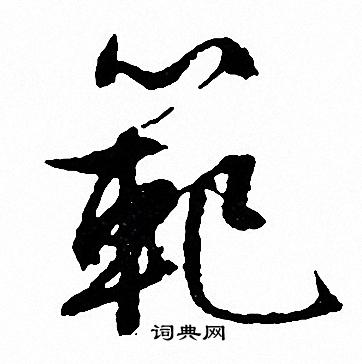 範
词典网